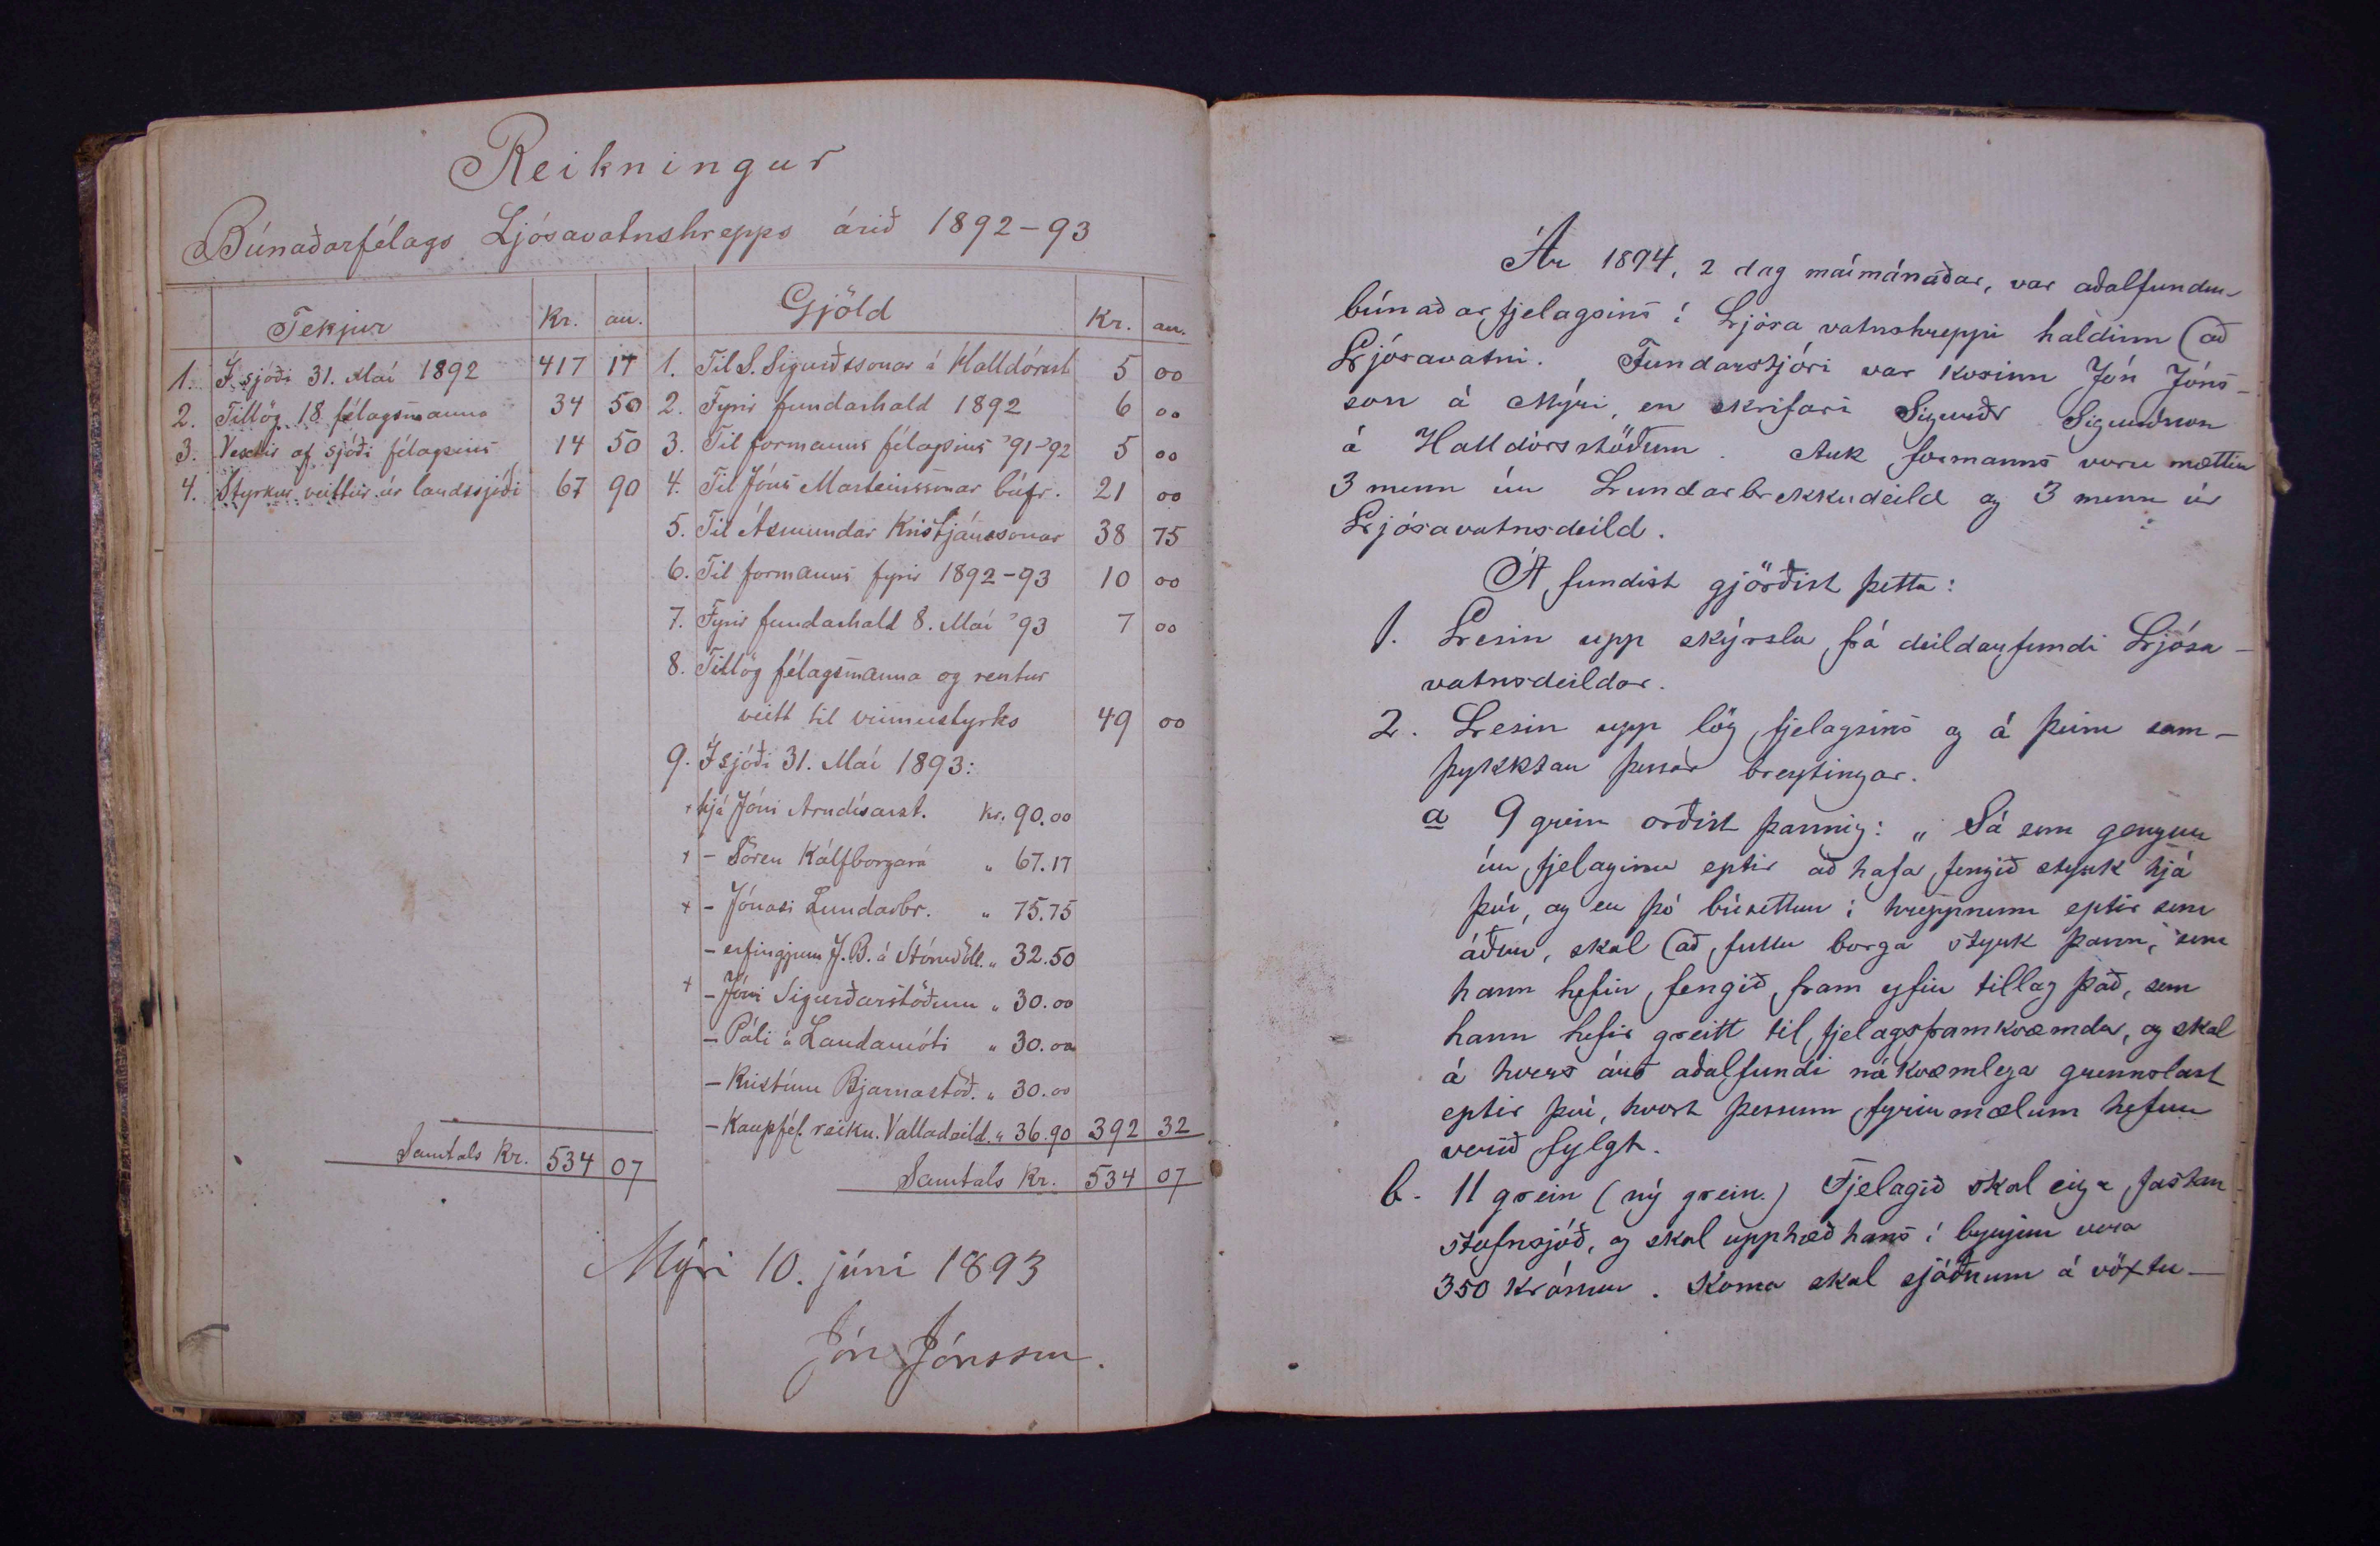 Reikningur
Búnaðarfélags Ljósavatnshrepps árið 1892-93
Tekjur Kr. au.
1. Í sjóði 31. Maí 1892 417 17
2. Tillög 18 félagsmanna 34 50
3. Vextir af sjóði félagsins 14 50
4. Styrkur veittur úr landssjóði 67 90
Samtals Kr. 534 07
Gjöld Kr. au.
1. Til S. Sigurðssonar á Halldórsst 5 00
2. Fyrir fundarhald 1892 6 00
3. Til formanns félagsins '91-'92 5 00
4. Til Jóns Marteinssonar búfr. 21 00
5. Til Ásmundar Kristjánssonar 38 75
6. Til formanns fyrir 1892-93 10 00
7. Fyrir fundarhald 8. Maí '93 7 00
8. Tillög félagsmanna og rentur
veitt til vinnustyrks 49 00
9. Í sjóði 31. Maí 1893:
+ hjá Jóni Arndísarst. kr. 90.00
+ - Sören Kálfborgará „ 67.17
+ - Jónasi Lundarbr. „ 75.75
- erfingjum J. B. á „ 32.50
+ - Jóni Sigurðarstöðum „ 30.00
- Páli á Landamóti „ 30.00
- Kristínu Bjarnastöð. „ 30.00
- Kaupfél. reikn. Valladeild. „ 36.90 392 32
Samtals Kr. 534 07
Mýri 10. júní 1893
Jón Jónsson.
Ár 1894, 2 dag maímánaðar, var aðalfundur
búnaðarfjelagsins í Ljósavatnshreppi haldinn (að
Ljósavatni. Fundarstjóri var kosinn Jón Jóns-
son á Mýri, en skrifari Sigurðr Sigurðsson
á Halldórsstöðum. Auk formanns voru mættir
3 menn úr Lundarbrekkudeild og 3 menn úr
Ljósavatnsdeild.
Á fundist gjörðist þetta:
1. Lesin upp skýrsla frá deildarfundi Ljósa-
vatnsdeildar.
2. Lesin upp lög fjelagsins og á þeim sam-
þykktar þessar breytingar.
a 9 grein orðist þannig: „Sá sem gengur
úr fjelaginu eptir að hafa fengið styrk hjá
því, og er þó búsettur í hreppnum eptir sem
áður, skal (að fullu borga styrk þann, sem
hann hefir fengið fram yfir tillag það, sem
hann hefir greitt til fjelagsframkvæmdar, og skal
á hvers árs aðalfundi nákvæmlega grennslast
eptir því, hvort þessum fyrirmælum hefur
verið fylgt.
b. 11 grein (ný grein.) Fjelagið skal eiga fastan
stofnsjóð, og skal upphæð hans í byrjun vera
350 krónur. Koma skal sjóðnum á vöxtu-